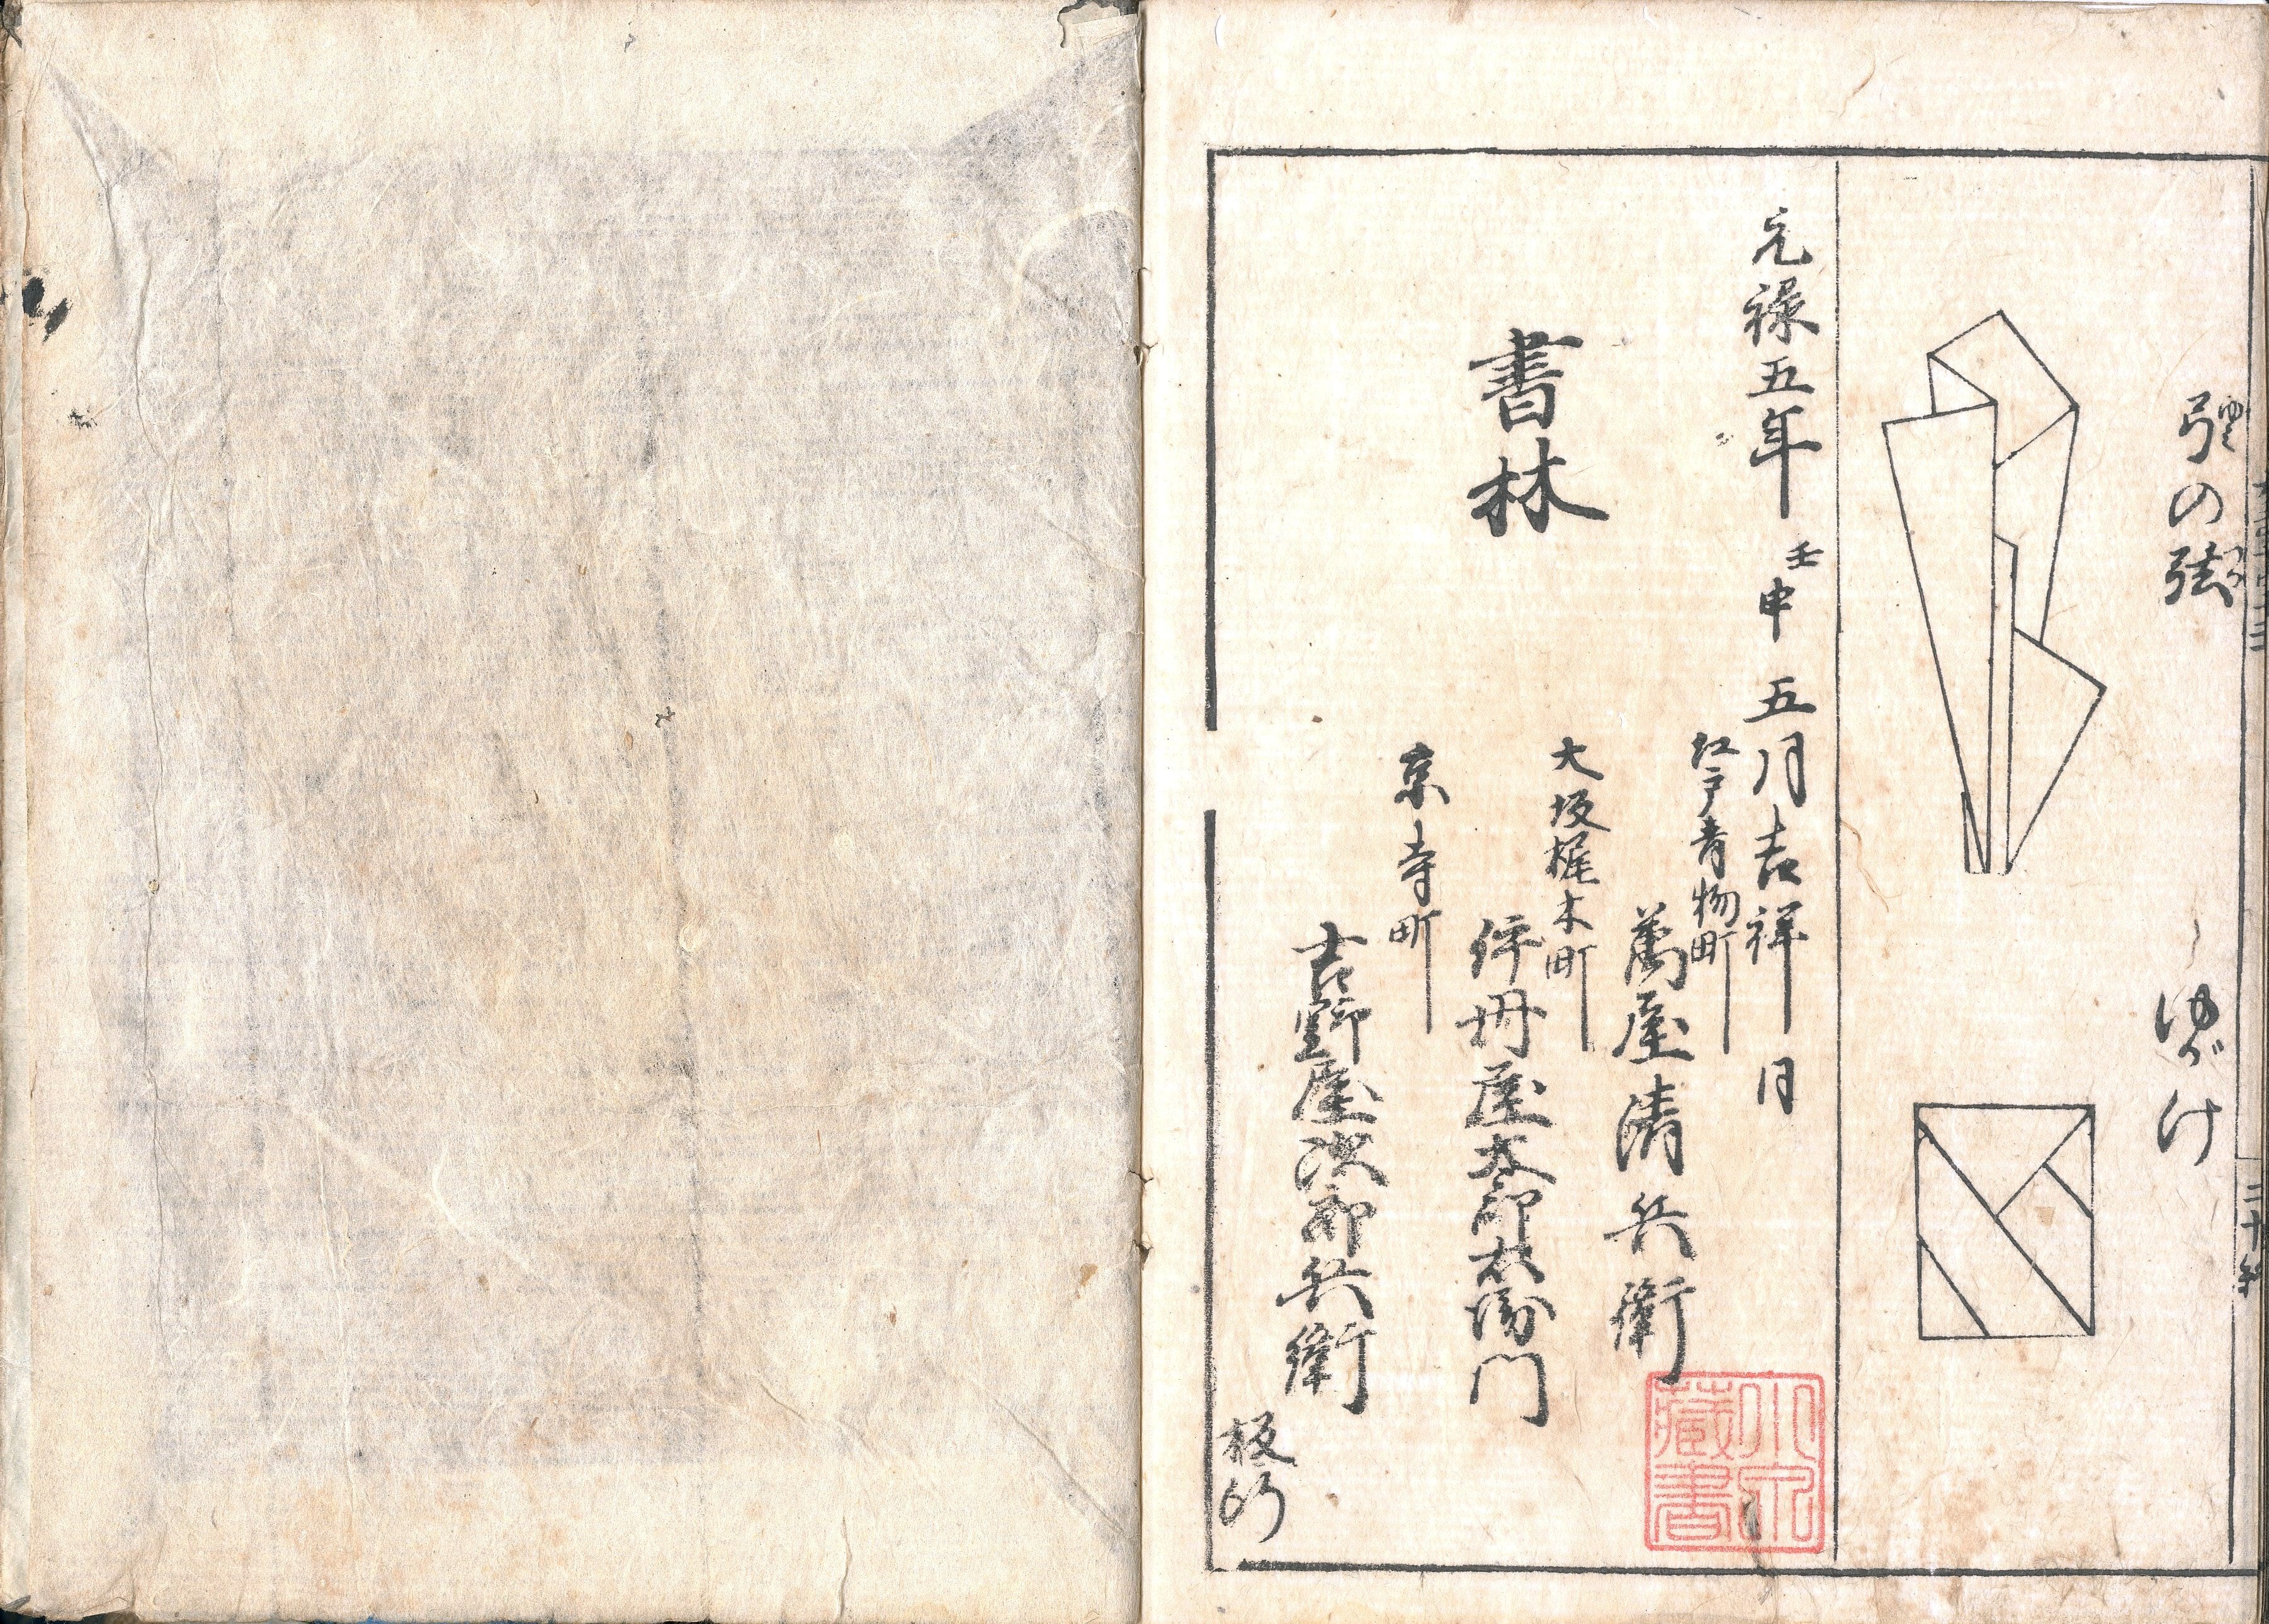 弓の弦
ゆがけ
元禄五年壬申五月吉祥日
書林
江戸青物町
萬屋清兵衛
大坂梶木町
伊丹屋太郎右衛門
京寺町
吉野屋次郎兵衛
板行
藏書